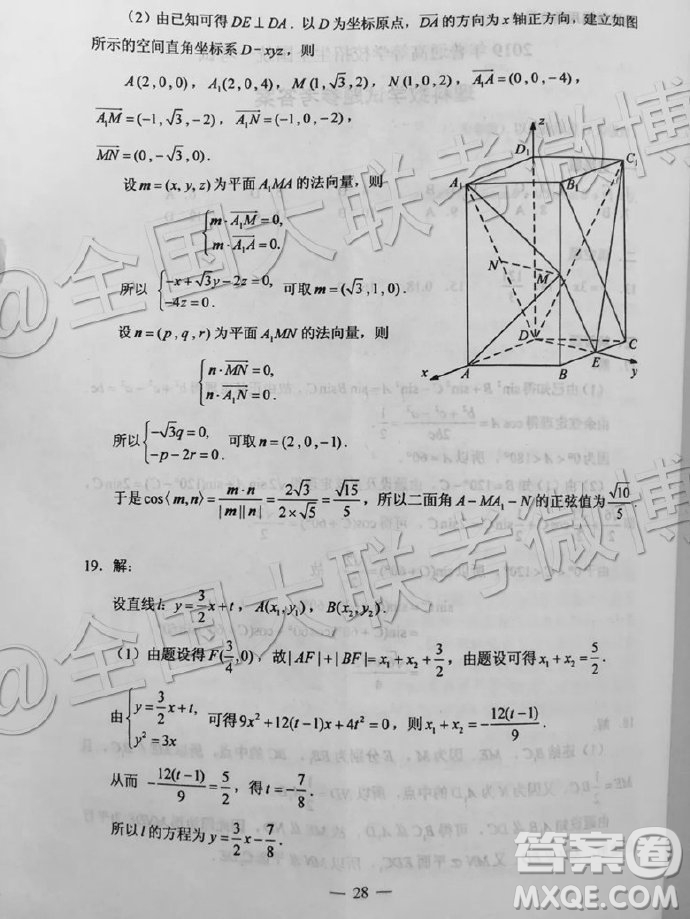 （2）由已知可得 DE⊥DA．以 D 为坐标原点，$\overrightarrow{DA}$ 的方向为 x 轴正方向，建立如图
所示的空间直角坐标系 D-xyz，则
A(2,0,0)，A₁(2,0,4)，M(1,√3,2)，N(1,0,2)，$\overrightarrow{A_1A}$=(0,0,-4)，
$\overrightarrow{A_1M}$=(-1,√3,-2)，$\overrightarrow{A_1N}$=(-1,0,-2)，
$\overrightarrow{MN}$=(0,-√3,0)．
设 m=(x,y,z) 为平面 A₁MA 的法向量，则
$\begin{cases} m\cdot\overrightarrow{A_1M}=0, \\ m\cdot\overrightarrow{A_1A}=0. \end{cases}$
所以 $\begin{cases} -x+\sqrt{3}y-2z=0, \\ -4z=0. \end{cases}$ 可取 m=(√3,1,0)．
设 n=(p,q,r) 为平面 A₁MN 的法向量，则
$\begin{cases} n\cdot\overrightarrow{MN}=0, \\ n\cdot\overrightarrow{A_1N}=0. \end{cases}$
所以 $\begin{cases} -\sqrt{3}q=0, \\ -p-2r=0. \end{cases}$ 可取 n=(2,0,-1)．
于是 $\cos\langle m,n\rangle=\frac{m\cdot n}{|m||n|}=\frac{2\sqrt{3}}{2\times\sqrt{5}}=\frac{\sqrt{15}}{5}$，所以二面角 A-MA₁-N 的正弦值为 $\frac{\sqrt{10}}{5}$．
z
D₁
C₁
A₁
B₁
N
M
D
C
E
x
A
B
y
19．解：
设直线 l：$y=\frac{3}{2}x+t$，A(x₁,y₁)，B(x₂,y₂)．
（1）由题设得 $F(\frac{3}{4},0)$，故 $|AF|+|BF|=x_1+x_2+\frac{3}{2}$，由题设可得 $x_1+x_2=\frac{5}{2}$．
由 $\begin{cases} y=\frac{3}{2}x+t, \\ y^2=3x \end{cases}$ 可得 $9x^2+12(t-1)x+4t^2=0$，则 $x_1+x_2=-\frac{12(t-1)}{9}$．
从而 $-\frac{12(t-1)}{9}=\frac{5}{2}$，得 $t=-\frac{7}{8}$．
所以 l 的方程为 $y=\frac{3}{2}x-\frac{7}{8}$．
— 28 —
@全国大联考微博
@全国大联考微博
答案圈
MXQE.COM